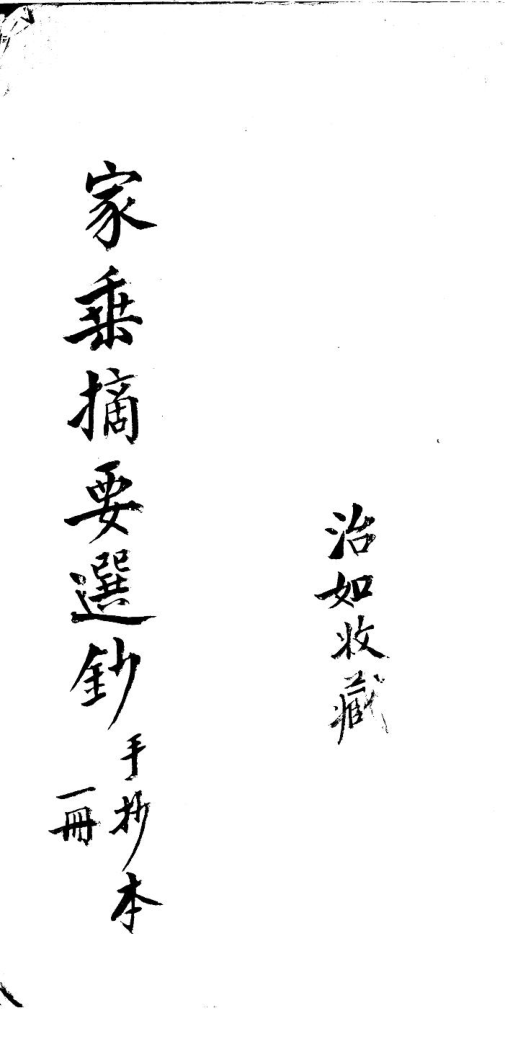 治如收藏
家乘摘要選鈔
手抄本
一冊